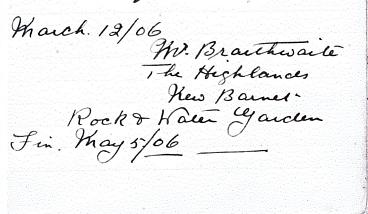 March. 12/06
Mr. Braithwaite
The Highlands
New Barnet
Rock & Water Garden
Fin. May 5/06